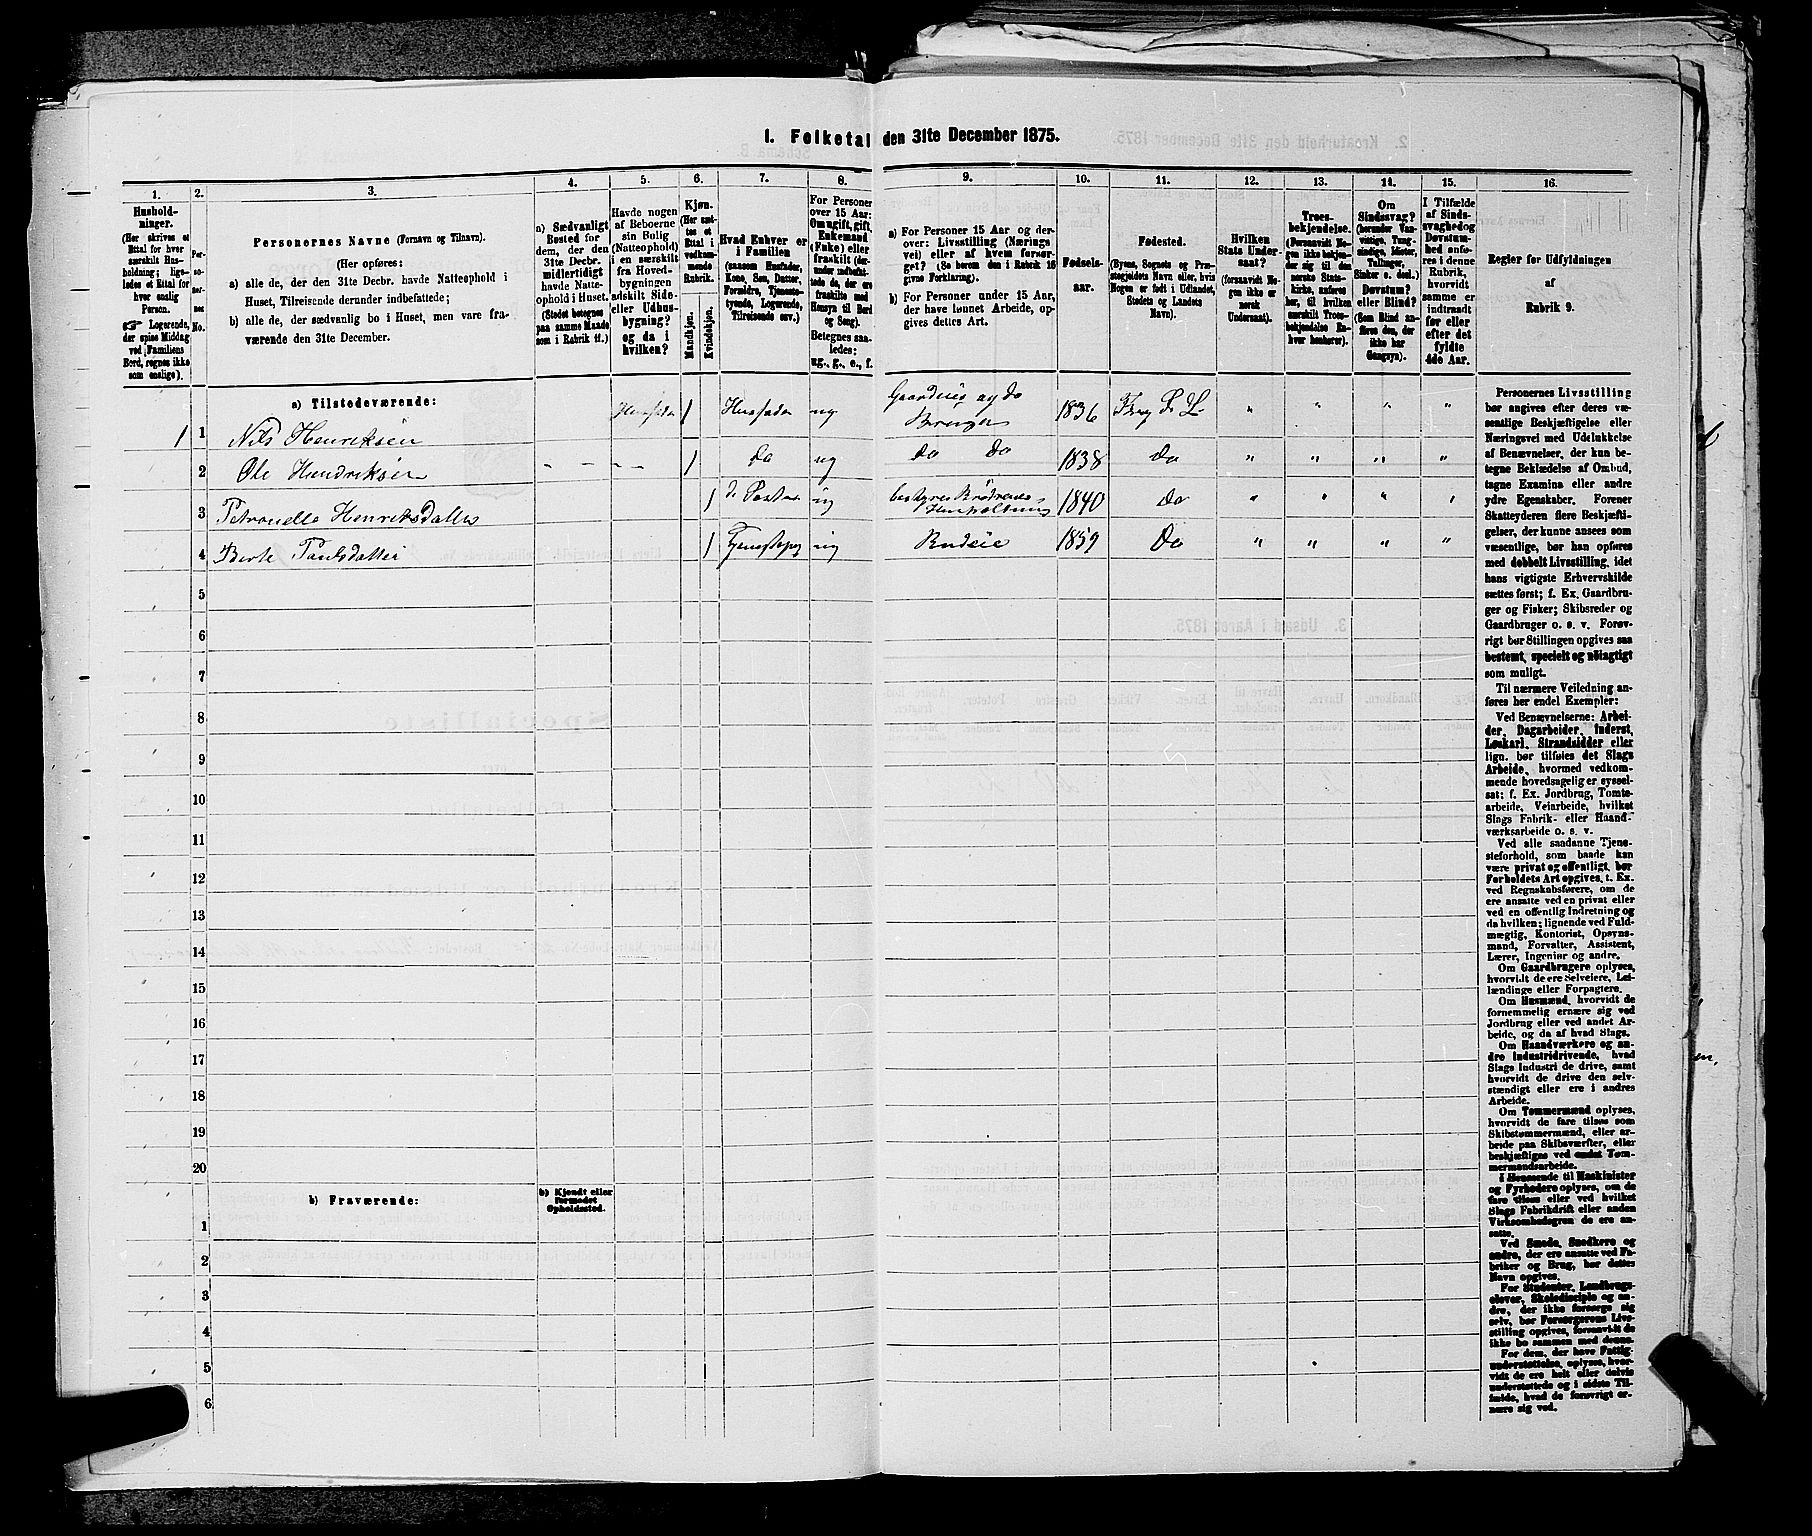 1. Folketal den 31te December 1875.
1. 2. 3. 4. 5. 6. 7. 8. 9. 10. 11. 12. 13. 14. 15. 16.
Hushold-
ninger.
(Her skrives et
Ettal for hver
særskilt Hus-
holdning; lige-
ledes et Ettal for
hver enslig
Person.
☞ Logerende,
der spise Middag
ved Familiens
Bord, regnes ikke
som enslige).
Per-
so-
ner-
nes
No.
Personernes Navne (Fornavn og Tilnavn).
(Her opføres:
a) alle de, der den 31te Decbr. havde Natteophold i
Huset, Tilreisende derunder indbefattede;
b) alle de, der sædvanlig bo i Huset, men vare fra-
værende den 31te December.
a) Sædvanligt
Bosted for
dem, der den
31te Decbr.
midlertidigt
havde Natte-
ophold i Huset.
(Stedet betegnes
paa samme Maade
som i Rubrik 11.)
Havde nogen
af Beboerne
sin Bolig
(Natteophold)
i en særskilt
fra Hoved-
bygningen
adskilt Side-
eller Udhus-
bygning?
og da i
hvilken?
Kjøn.
(Her sæt-
tes et
Ettal i
vedkom-
mende
Rubrik.
Mandkjøn.
Kvindekjøn.
Hvad Enhver er
i Familien
(saasom Husfader,
Kone, Søn, Datter,
Forældre, Tjeneste-
tyende, Logerende,
Tilreisende osv.)
For Personer
over 15 Aar:
Om ugift, gift,
Enkemand
(Enke) eller
fraskilt (der-
under indbefat-
tede de, der ere
fraskilte med
Hensyn til Bord
og Seng).
Betegnes saa-
ledes:
ug., g., e., f.
a) For Personer 15 Aar og der-
over: Livsstilling (Nærings
vei) eller af hvem forsør-
get? (Se herom den i Rubrik 16
givne Forklaring).
b) For Personer under 15 Aar,
der have lønnet Arbeide, op-
gives dettes Art.
Fødsels-
aar.
Fødested.
(Byens, Sognets og Præ-
stegjeldets Navn eller, hvis
Nogen er født i Udlandet,
Stedets og Landets
Navn).
Hvilken
Stats Under-
saat?
(forsaavidt No-
gen ikke er
norsk
Undersaat).
Troes-
bekjendelse.
(Forsaavidt No-
gen ikke bekjen-
der sig til den
norske Stats-
kirke, anføres
her, til hvilken
særskilt Troes-
bekjendelse Ea-
hver henhører).
Om
Sindssvag?
(herunder Van-
vittige, Tung-
sindige, Idioter,
Tullinger,
Sinker o. desl.)
Døvstum?
eller Blind?
(Som Blind an-
føres den, der
ikke har
Gangsyn).
I Tilfælde
af Sinds-
svaghed og
Døvstum-
hed anfø-
res i denne
Rubrik,
hvorvidt
samme er
indtraadt
før eller
efter det
fyldte
4de Aar.
Regler for Udfyldningen
af
Rubrik 9.
a) Tilstedeværende:
1 1 Nils Henriksen 1 Husfader ug Gaardeier og do Bruger 1836 " " " "
2 Ole Hendriksen - - - - 1 do ug do do 1838 do " " " "
3 Petronelle Henriksdatter 1 ug 1840 do " " " "
4 Berte Paulsdatter 1 ug 1859 Do " " " "
5
6
7
8
9
10
11
12
13
14
15
16
17
18
19
20
b) Fraværende:
b) Kjendt eller
formodet
Opholdssted.
1
2
3
4
5
6
Personernes Livsstilling
bør angives efter deres væ-
sentlige Beskjæftigelse eller
Næringsvei med Udelukkelse
af Benævnelser, der kun be-
tegne Beklædelse af Ombud,
tagne Examina eller andre
ydre Egenskaber. Forener
Skatteyderen flere Beskjæfti-
gelser, der kunne ansees som
væsentlige, bør han opføres
med dobbelt Livsstilling, idet
hans vigtigste Erhvervskilde
sættes først; f. Ex. Gaardbru-
ger og Fisker; Skibsreder og
Gaardbruger o. s. v. Forøv-
rigt bør Stillingen opgives saa
bestemt, specielt og nöiagtigt
som muligt.
Til nærmere Veiledning an-
føres her endel Exempler:
Ved Benævnelserne: Arbei-
der, Dagarbeider, Inderst,
Løskarl, Strandsidder eller
lign. bør tilføies det Slags
Arbeide, hvormed vedkom-
mende hovedsagelig er syssel-
sat; f. Ex. Jordbrug, Tomte-
arbeide, Veiarbeide, hvilket
Slags Fabrik- eller Haand-
værksarbeide o. s. v.
Ved alle saadanne Tjene-
steforhold, som baade kan
være privat og offentligt, bør
Forholdets Art opgives, t. Ex.
ved Regnskabsførere, om de
ere ansatte ved en privat eller
ved en offentlig Indretning og
da hvilken; lignende ved Fuld-
mægtig, Kontorist, Opsyns-
mand, Forvalter, Assistent,
Lærer, Ingeniør og andre.
Om Gaardbrugere oplyses,
hvorvidt de ere Selveiere, Lei-
lændinge eller Forpagtere.
Om Husmænd, hvorvidt de
fornemmelig ernære sig ved
Jordbrug eller ved andet Ar-
beide, og da af hvad Slags.
Om Haandværkere og an-
dre Industridrivende, hvad
Slags Industri de drive, samt
hvorvidt de drive den selv-
stændigt eller ere i andres
Arbeide.
Om Tømmermænd oplyses,
hvorvidt de fare tilsøs som
Skibstømmermænd, eller ar-
beide paa Skibsværfter, eller
beskjæftiges ved andet Tøm-
mermandsarbeide.
I Henseende til Maskinister
og Fyrbødere oplyses, om de
fare tilsøs eller ved hvilket
Slags Fabrikdrift eller anden
Virksomhedsgren de ere an-
satte.
Ved Smede, Snedkere og
andre, der ere ansatte ved Fa-
briker og Brug, bør dettes
Navn opgives.
For Studenter, Landbrugs-
elever, Skoledisciple og an-
dre, der ikke forsørge sig
selv, bør Forsørgerens Livs-
stilling opgives, forsaavidt de
ikke bo sammen med denne.
For dem, der have Fattig-
understøttelse, oplyses, hvor-
vidt de ere helt eller delvis
understøttede og i sidste Til-
fælde, hvad de forøvrigt er-
nære sig ved.